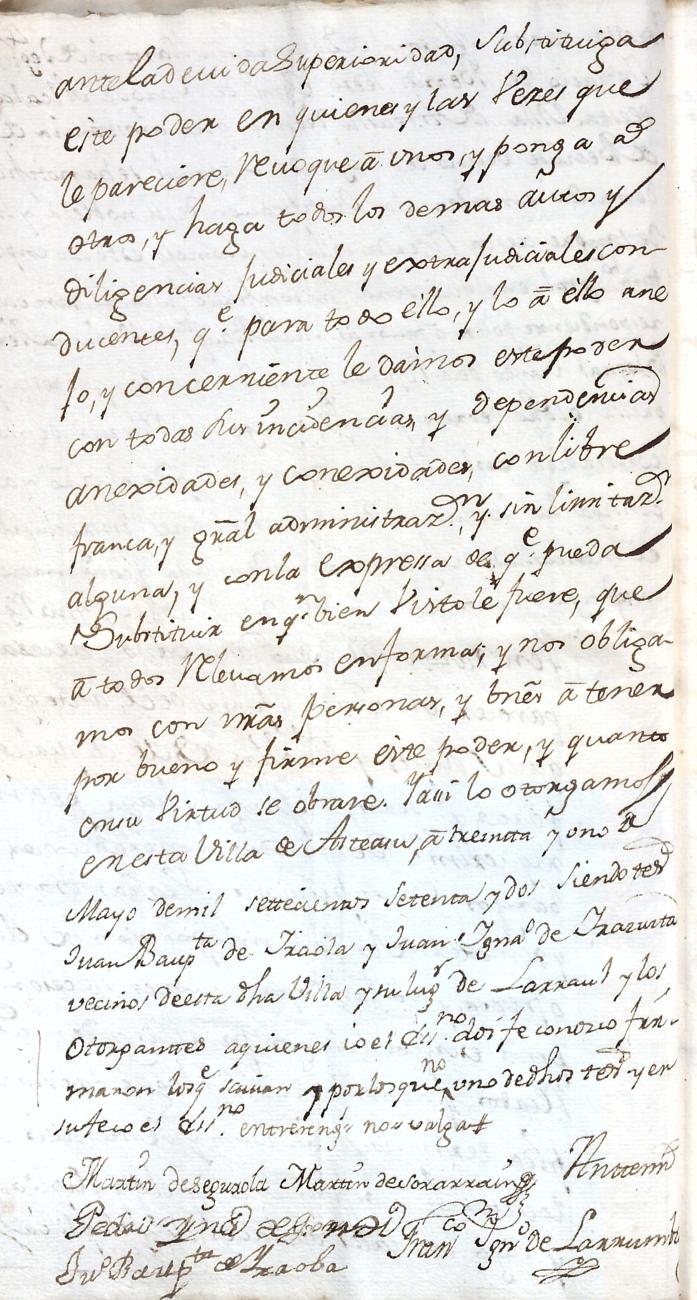 ante la devida Superioridad, Substituiga
este poder en quienes y las Vezes que
le pareciere, Revoque â unos, y ponga a
otros, y haga todos los demas autos y
diligencias Judiciales y extrajudiciales con-
ducentes, q.e para todo ello, y lo â ello ane
jo, y concerniente le damos este poder
con todas sus incidencias, y dependencias
anexidades, y conexidades, con libre
franca, y gral administraz.n y sin limitaz.n
alguna, y con la expressa de q.e pueda
Substituir en q.n bien Visto le fuere, que
â todos Relevamos en forma; y nos obliga-
mos con nras personas, y bnes â tener
por bueno y firme este poder, y quanto
en su Virtud se obrare. Y assi lo otorgamos
en esta Villa de Asteasu, â treinta y uno de
Mayo de mil settecientos setenta y dos siendo tes
Juan Baup.ta de Yraola y Juan Ygna.o de
vecinos de esta dha Villa y su lug.r de Larraul y los
otorgantes aquienes io el ess.no doi fe conozco fir-
maron los q.e savian y por los que no, uno de dhos tes y en
fe io el ess.no entrereng.s no valga
Martin de segurola Martin de sorarrain Antemi
Pedro
Fran.co Ygn.o de Larrumb
Ju.n Baup.ta de Yraola